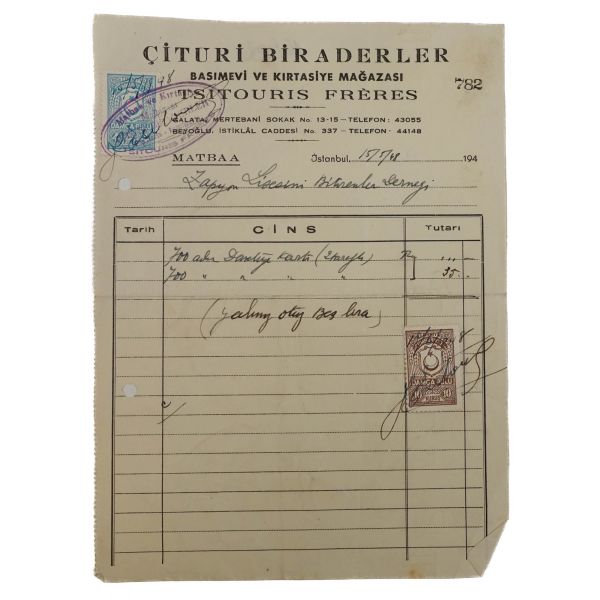 ÇİTURİ BİRADERLER
BASIMEVİ VE KIRTASİYE MAĞAZASI
782
TSITOURIS FRÈRES
GALATA, MERTEBANİ SOKAK No. 13-15 — TELEFON: 43055
BEYOĞLU, İSTİKLÂL CADDESİ No. 337 — TELEFON: 44148
MATBAA
İstanbul, 15/5/48 194
Zapyon Lisesini Bitirenler Derneği
Tarih CİNS Tutarı
700 adet Davetiye Kartı (2 taraflı)
700 " " " " 35.-
(Yalnız otuz beş lira)
10 10